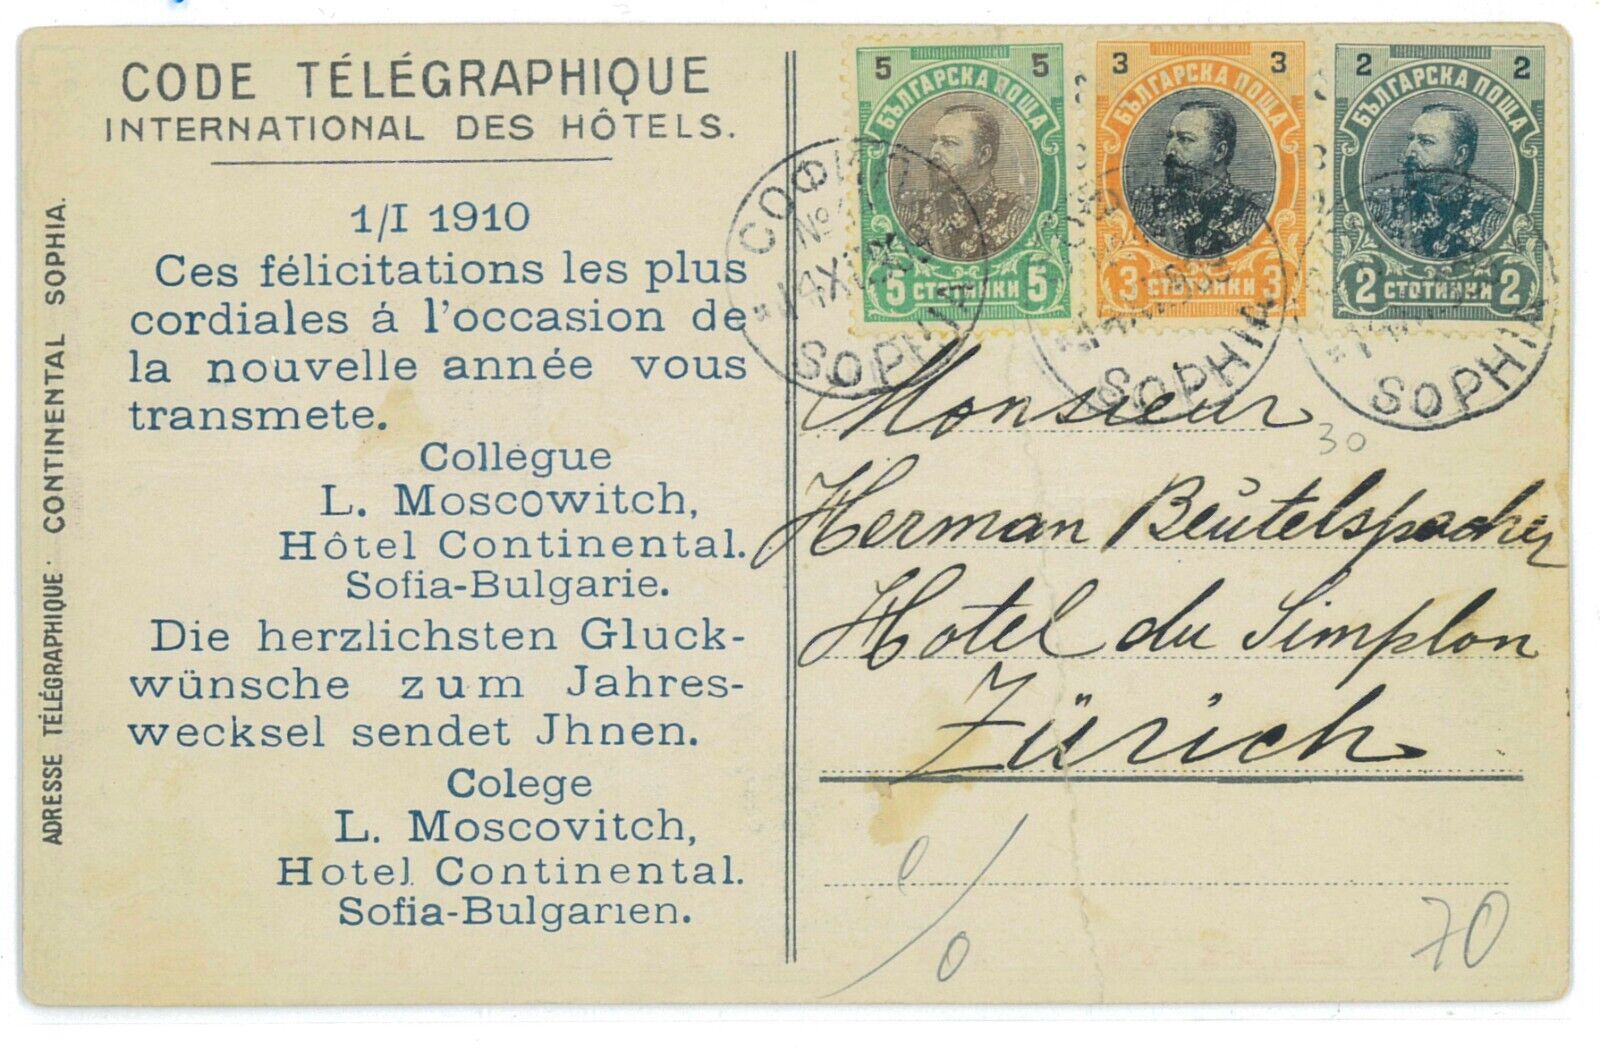 CODE TÉLÉGRAPHIQUE
INTERNATIONAL DES HÔTELS.
1/I 1910
Ces félicitations les plus
cordiales á l'occasion de
la nouvelle année vous
transmete.
Collégue
L. Moscowitch,
Hôtel Continental.
Sofia-Bulgarie.
Die herzlichsten Gluck-
wünsche zum Jahres-
wecksel sendet Jhnen.
Colege
L. Moscovitch,
Hotel Continental.
Sofia-Bulgarien.
ADRESSE TÉLÉGRAPHIQUE: CONTINENTAL SOPHIA.
5 5
БЪЛГАРСКА ПОЩА
5 СТОТИНКИ 5
3 3
БЪЛГАРСКА ПОЩА
3 СТОТИНКИ 3
2 2
БЪЛГАРСКА ПОЩА
2 СТОТИНКИ 2
СОФИЯ
No
SOPHIA
SOPHIA
SOPHIA
Monsieur
30
Herman Beutelspacher
Hotel du Simplon
Zürich
70